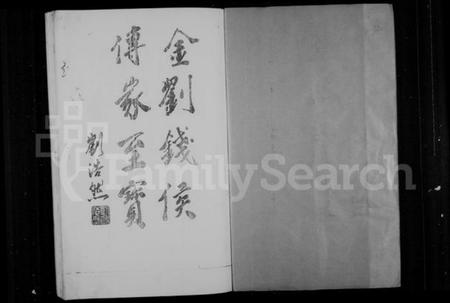 金劉錢侯
傳家至寶
劉浩然
FamilySearch